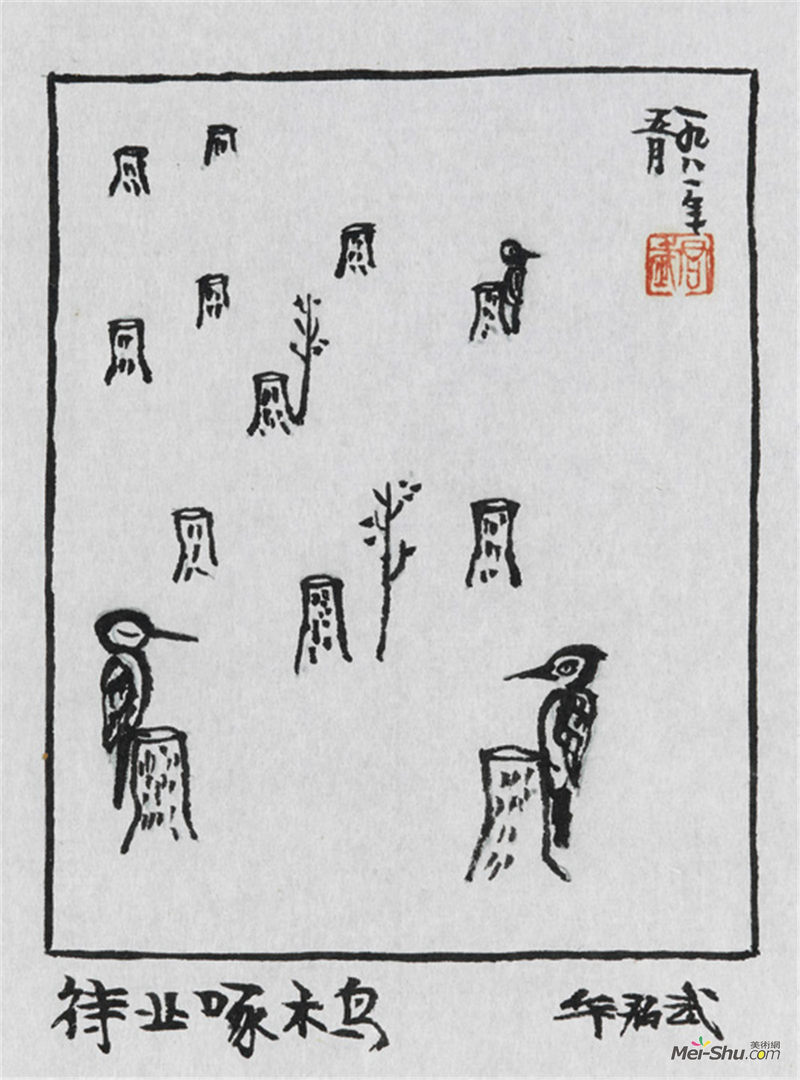 一九八一年
五月
君武
待业啄木鸟
华君武
美術網
Mei-Shu.com